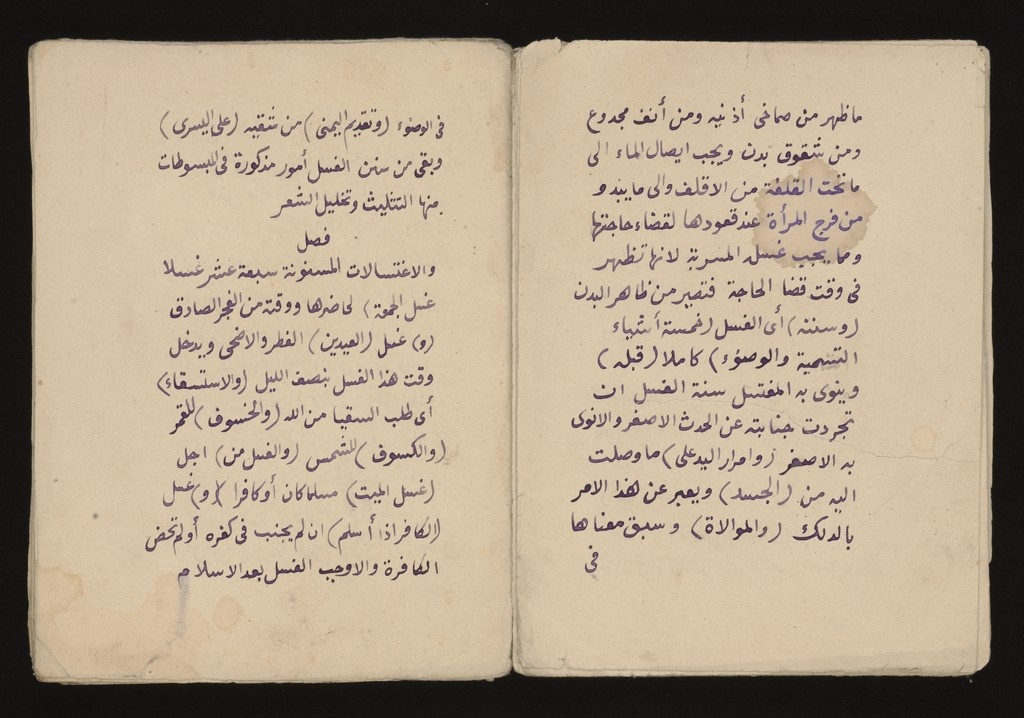 ماظهر من صماخى أذنيه ومن أنف مجدوع
ومن شقوق بدن ويجب ايصال الماء الى
ماتحت القلفة من الاقلف والى مايبدو
من فرج المرأة عند قعودها لقضاء حاجتها
ومما يجب غسله المسربة لانها تظهر
فى وقت قضا الحاجة فتصير من ظاهر البدن
(وسننه) أى الغسل (خمسة أشياء
التسمية والوضوء) كاملا (قبله)
وينوى به المغتسل سنة الغسل ان
تجردت جنابته عن الحدث الاصغر والانوى
به الاصغر (وامرار اليد على) ماوصلت
اليه من (الجسد) ويعبر عن هذا الامر
بالدلك (والموالاة) وسبق معناها
فى
فى الوضوء (وتقديم اليمنى) من شقيه (على اليسرى)
وبقى من سنن الغسل أمور مذكورة فى المبسوطات
منها التثليث وتخليل الشعر
فصل
والاغتسالات المسنونة سبعة عشر غسلا
غسل الجمعة) لحاضرها ووقته من الفجر الصادق
(و) غسل (العيدين) الفطر والاضحى ويدخل
وقت هذا الغسل بنصف الليل (والاستسقاء)
أى طلب السقيا من الله (والخسوف) للقمر
(والكسوف) للشمس (والغسل من) اجل
(غسل الميت) مسلما كان أو كافرا (و) غسل
(الكافر اذا أسلم) ان لم يجنب فى كفره أو لم تحض
الكافرة والاوجب الغسل بعد الاسلام